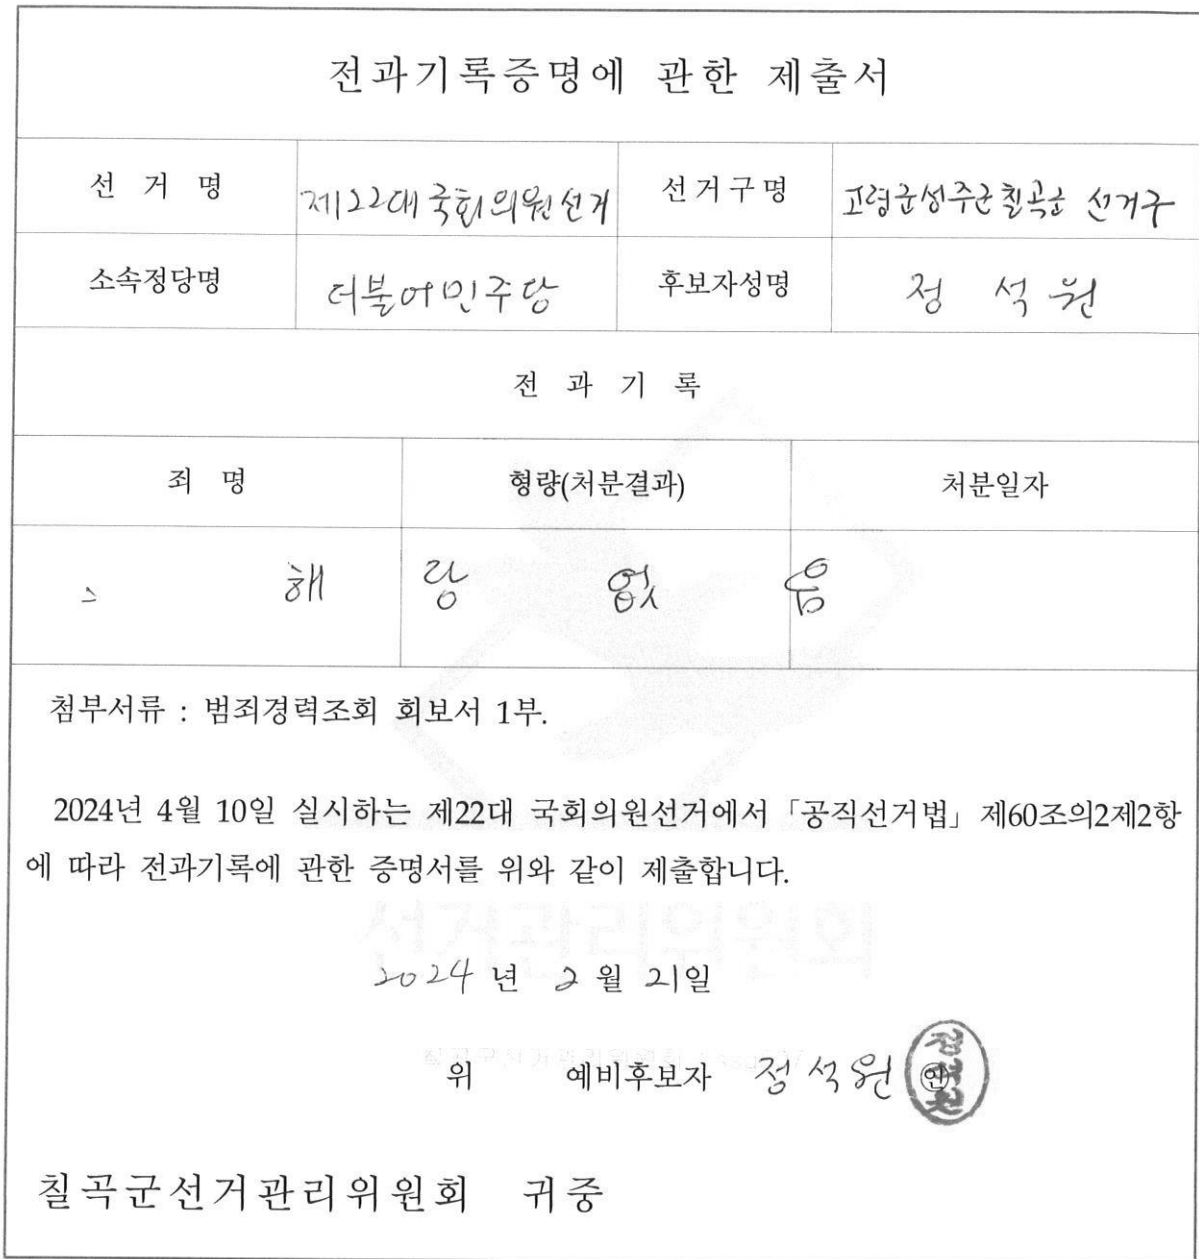 전과기록증명에 관한 제출서
선 거 명 제22대국회의원선거 선거구명 고령군성주군칠곡군 선거구
소속정당명 더불어민주당 후보자성명 정 석 원
전 과 기 록
죄 명 형량(처분결과) 처분일자
해 당 없 음
첨부서류 : 범죄경력조회 회보서 1부.
2024년 4월 10일 실시하는 제22대 국회의원선거에서 「공직선거법」 제60조의2제2항
에 따라 전과기록에 관한 증명서를 위와 같이 제출합니다.
선거관리위원회
2024 년 2 월 21일
위 예비후보자 정석원 ㊞
정석원
칠곡군선거관리위원회 귀중